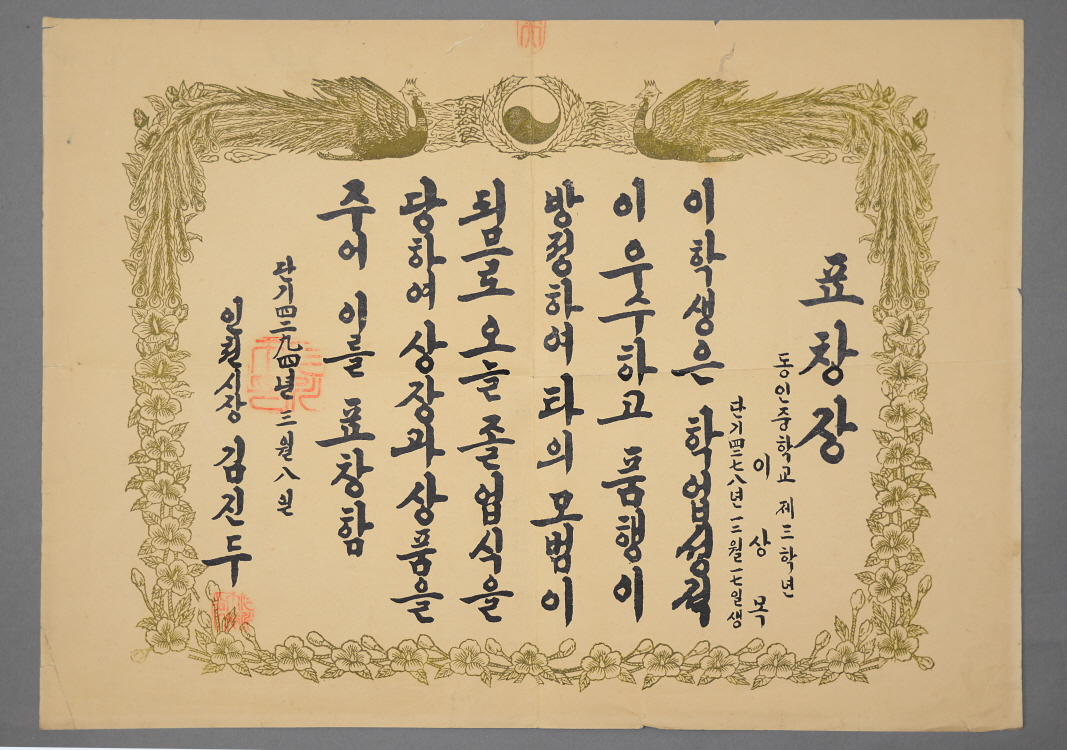 표창장
동인중학교 제三학년
이상목
단기四二七八년 一二월 一七일생
이 학생은 학업성적
이 우수하고 품행이
방정하여 타의 모범이
되므로 오늘 졸업식을
당하여 상장과 상품을
주어 이를 표창함
단기四二九四년 三월 八일
인천시장 김진두